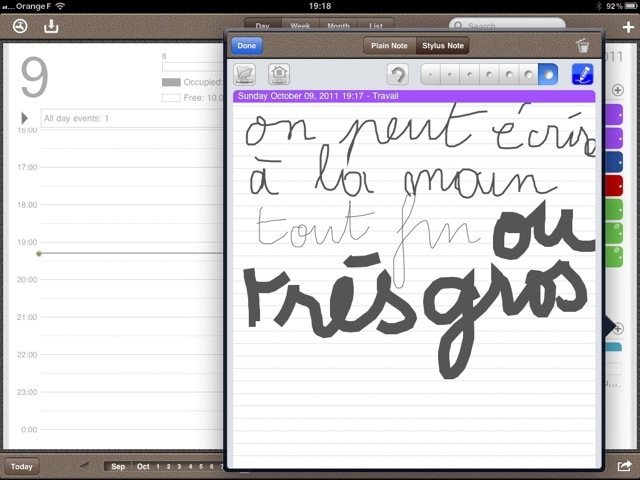 Orange F 19:18 92%
Day Week Month List Search
9
8
Occupied:
Free: 10.0
All day events: 1
16:00
17:00
18:00
19:00
20:00
21:00
22:00
23:00
0:00
Done Plain Note Stylus Note
Sunday October 09, 2011 19:17 - Travail
on peut écris
à la main
tout fin ou
très gros
2011
Today Sep Oct 1 2 3 4 5 6 7